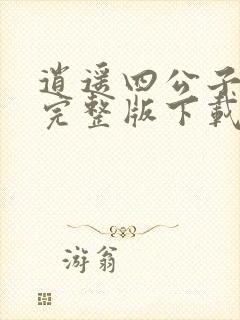 逍遥四公子
完整版下载
游翁